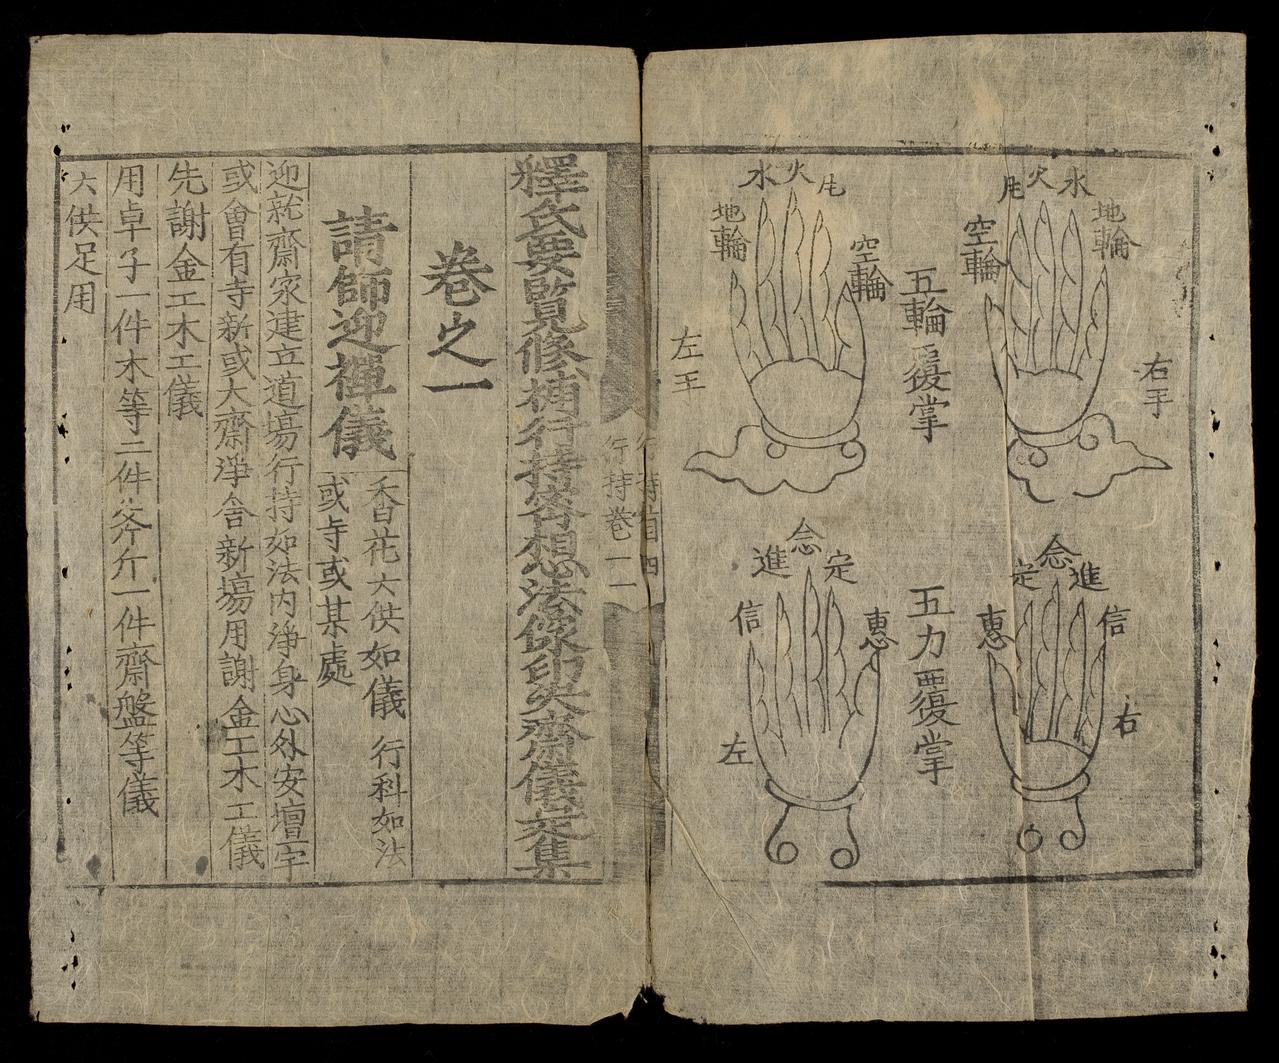 地輪
水
火
空輪
右手
五輪覆掌
空輪
火
水
地輪
左手
信
進
念
定
惠
右
五力覆掌
惠
定
念
進
信
左
行持卷一
釋氏要覽修補行持密想法像印尖齋儀文集
卷之一
請師迎禪儀
香花六供如儀 行科如法
或寺或某處
迎就齋家建立道場行持如法内淨身心外安壇宇
或會有寺新或大齋淨舍新塲用謝金工木工儀
先謝金工木工儀
用卓子一件木等二件斧斤一件齋盤等儀
六供足用